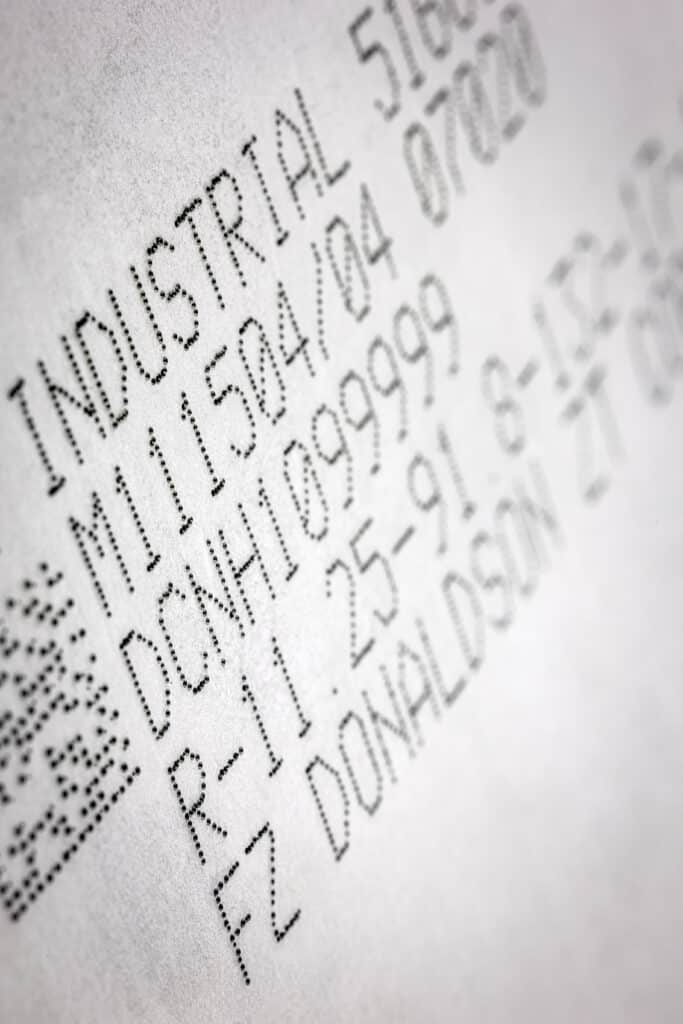 INDUSTRIAL
M111504/04 07020
DCNH1099999
R-11.25-91 8-152-
FZ DONALDSON ZT